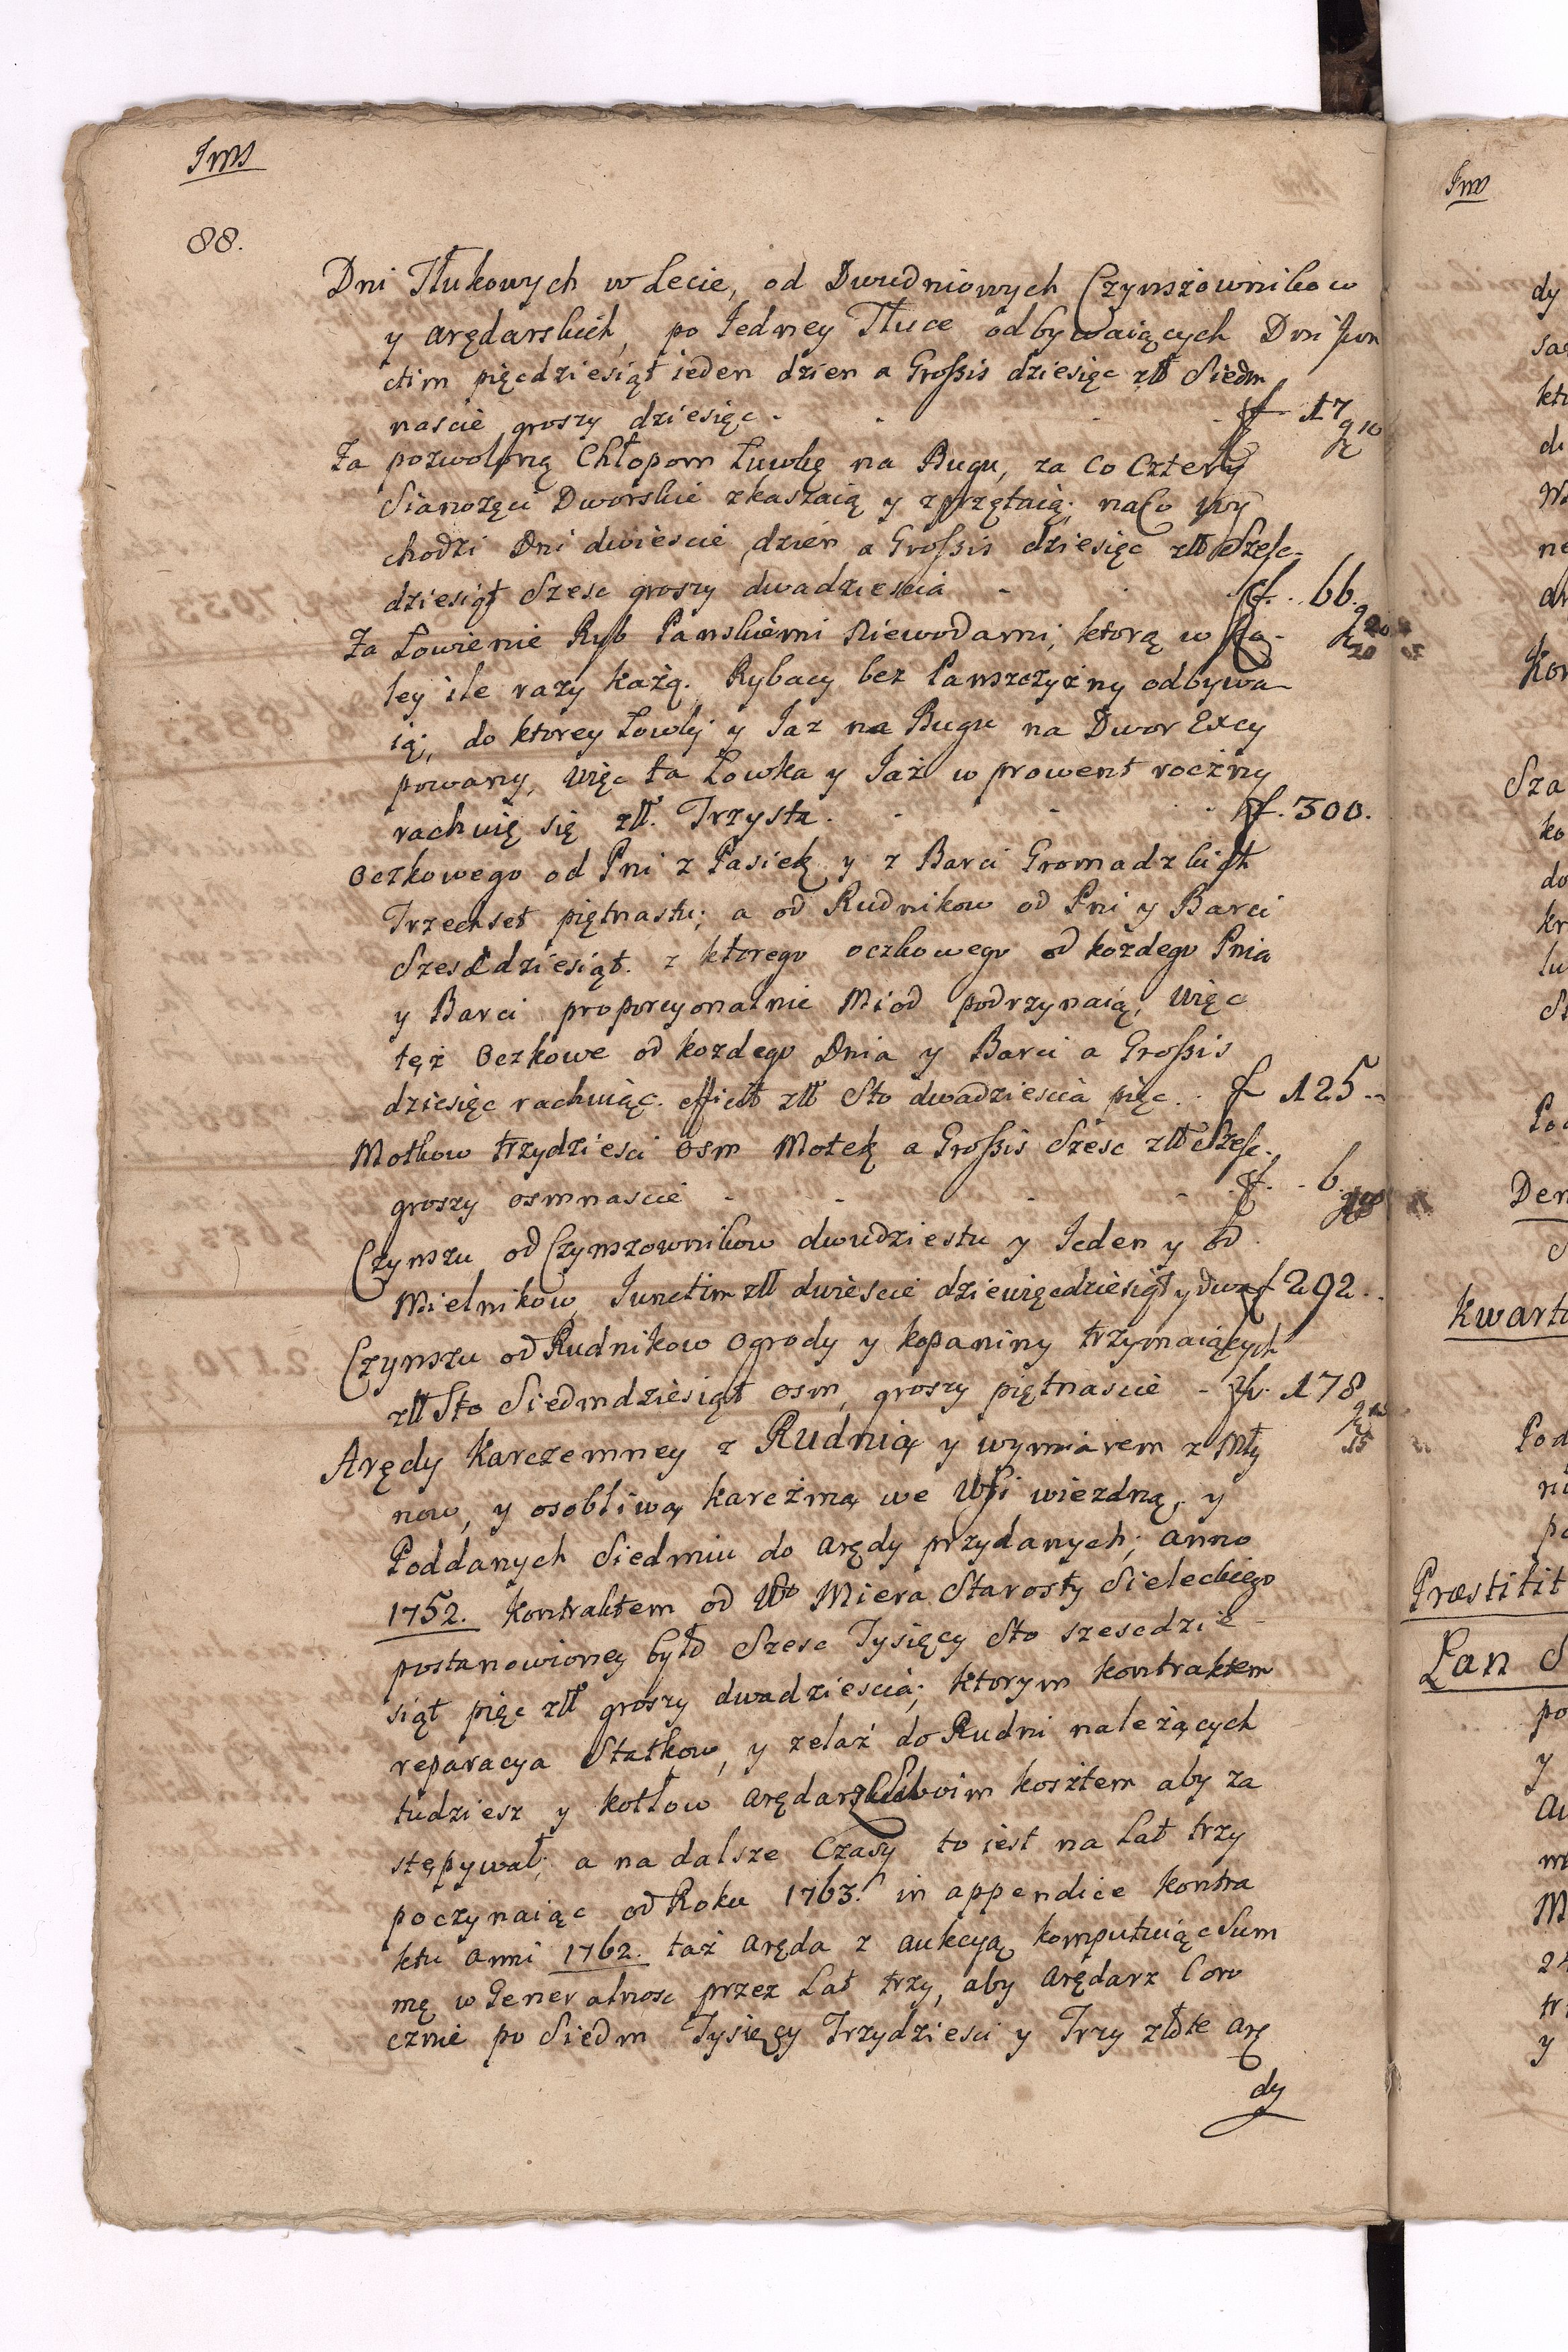 Jms
88.
Dni Tłukowych w Lecie, od Dwudniowych Czynszownikow
y arędarskich, po Jedney Tłuce odbywaiących Dni Jun
ctim pięcdziesiąt ieden dzien a Großis dziesięc złł Siedm
nascie groszy dziesięc. f 17 g 10
Za pozwoloną Chłopom Łuwkę na Bugu, za co Cztery
Sianozęci Dworskie zkaszaią y zprzętaią; na Co wy
chodzi Dni dwiescie dzień a Großis dziesięc złł Szesc-
dziesiąt Szesc groszy dwadziescia - f. 66. g 20
Za Łowienie Ryb Panskiemi Niewodami, ktorą w
ley ile razy każą. Rybacy bez Panszczyzny odbywa-
ią, do ktorey Łowlj y Jaz na Bugu na Dwor Excy
powany, Więc ta Łowka y Jaź w prowent rocżny
rachuię się złł. Trzysta. f. 300.
Oczkowego od Pni z Pasiek y z Barci Gromadzkich
Trzechset piętnastu; a od Rudnikow od Pni y Barci
Szescdziesiąt. z ktorego oczkowego od każdego Pnia
y Barci proporcyonalnie Miod podrzynaią, Więc
też Oczkowe od kozdego Pnia y Barci a Großis
dziesięc rachuiąc. efficit złł Sto dwadziescia pięc. f 125 --
Motkow trzydziesci Osm Motek a Großis Szesc złł Szesc.
groszy osmnascie - f. 6.
Czynszu od Czynszownikow dwudziestu y Jeden y od
Mielnikow, Junctim złł dwiescie dziewięcdziesiąt y dwa f 292..
Czynszu od Rudnikow Ogrody y kopaniny trzymaiących
złł Sto Siedmdziesiąt osm, groszy piętnascie - f. 178 g 15
Arędy Karczemney z Rudnią y wymiarem z Mły
now, y osobliwą karcżmą we Wsi wiezdną, y
Poddanych Siedmiu do arędy przydanych; anno
1752. Kontraktem od Wo Miera Starosty Sieleckiego
postanowioney było Szesc Tysięcy Sto szescdzie
siąt pięc złł groszy dwadziescia; ktorym kontraktem
reparacya Statkow, y zelaź do Rudni należących
tudziesz y kotłow arędarz Swoim kosztem aby za
stępywał; a na dalsze Czasy to iest na Lat trzy
poczynaiąc od Roku 1763. in appendice kontra
ktu anni 1762. taż aręda z aukcyą komputuiąc Sum
mę w Generalnosc przez Lat trzy, aby arędarz Coro
cznie po Siedm Tysięcy Trzydziesci y Trzy złote arę
dy
Jms
dy
ne
Kor
Sza
ko
do
kr
lu
Kwarta
Pod
Præstitit
Łan S
po
y
24
y